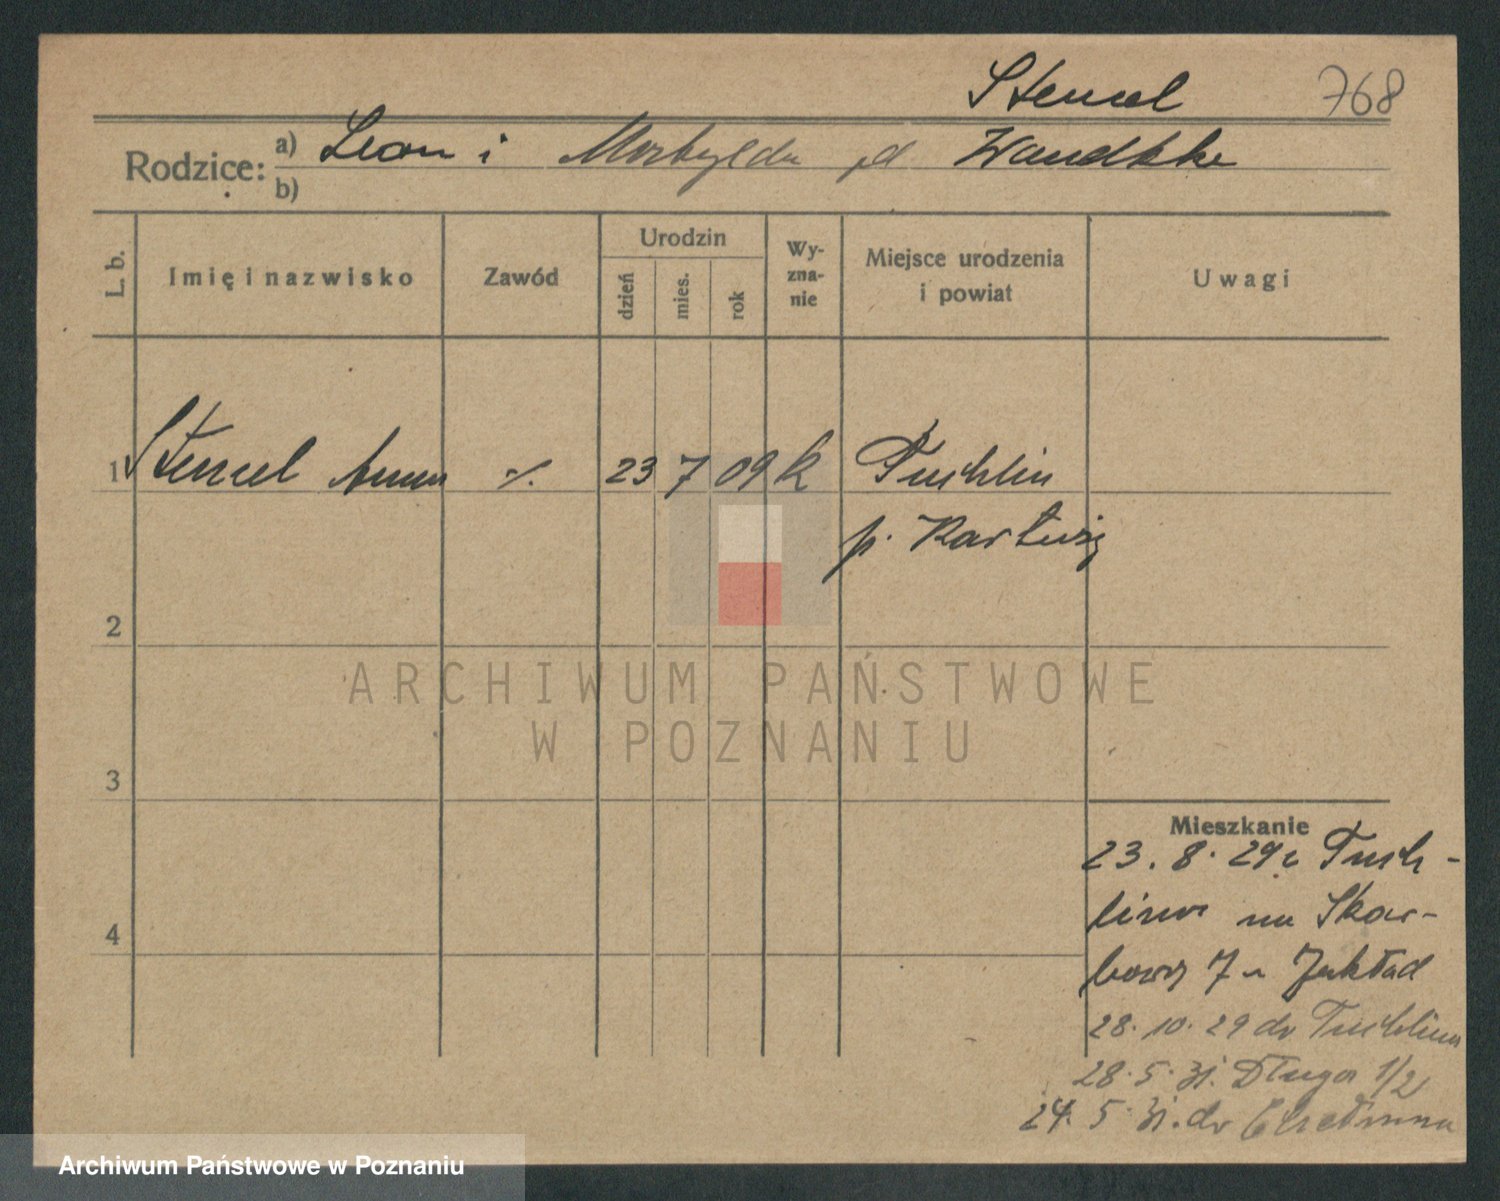 Stencel 768
Rodzice: a) Leon i Matylda d Wandtke
b)
L. b. Imię i nazwisko Zawód Urodzin dzień mies. rok Wyznanie Miejsce urodzenia i powiat Uwagi
1 Stencel Anna ./. 23 7 09 k Tuchlin
p. Kartuzy
2
ARCHIWUM PAŃSTWOWE
W POZNANIU
3
Mieszkanie
23. 8. 29 z Tuch-
lina na Skar-
4 bowa 7 Zakład
28. 10. 29 do Tuchlina
28. 5. 31. Długa 1/2
24. 5. 31. do Chełmna
Archiwum Państwowe w Poznaniu